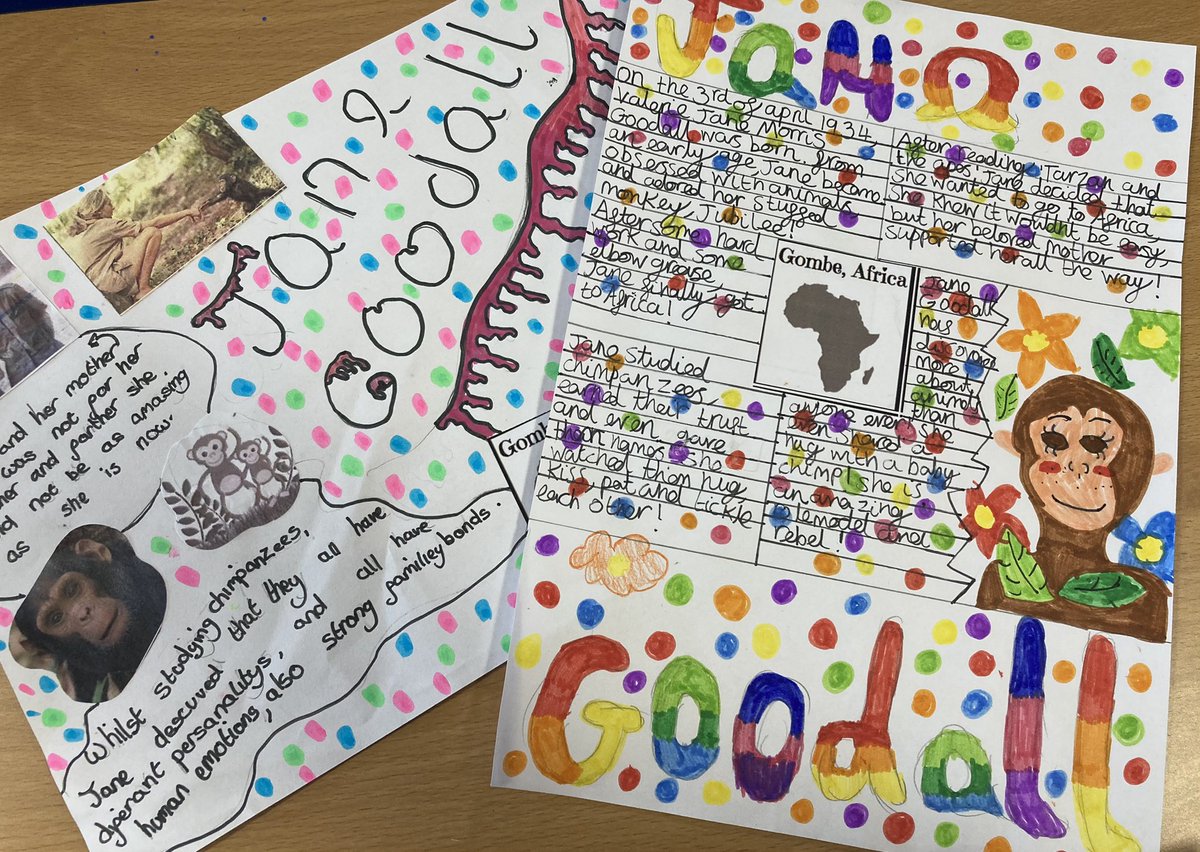 Jane
Goodall
and her mother
was not for her
her and panther she
not be as amasing
as she is now
whilst studying chimpanzees,
Jane descuverd that they all have
dperant personalitys, and all have
human emotions, also strong familiey bonds.
Gomb
JaNe
on the 3rd of april 1934,
Valerie Jane Morris
Goodall was born from
an early age, Jane becam
obsessed with animals
and adored her stugged
monkey, Jubilee!
After some hard
work and some
elbow grease,
Jane finally get
to Africa!
After reading, Tarzan and
the apes, Jane decided that
she wanted to go to Africa,
She knew it wouldnt be easy,
but her beloved mother
supported her all the way!
Gombe, Africa
Jane studied
chimpanzees
earned their trust
and even gave
them names she
watched them hug
kiss pat and tickle
each other!
Jane
Goodall
has
discoverd
more
about
animals
than
anyone ever, she
even shared a
hug with a baby
chimp! she is
an amazing
rolemodel and
rebel!
Goodall